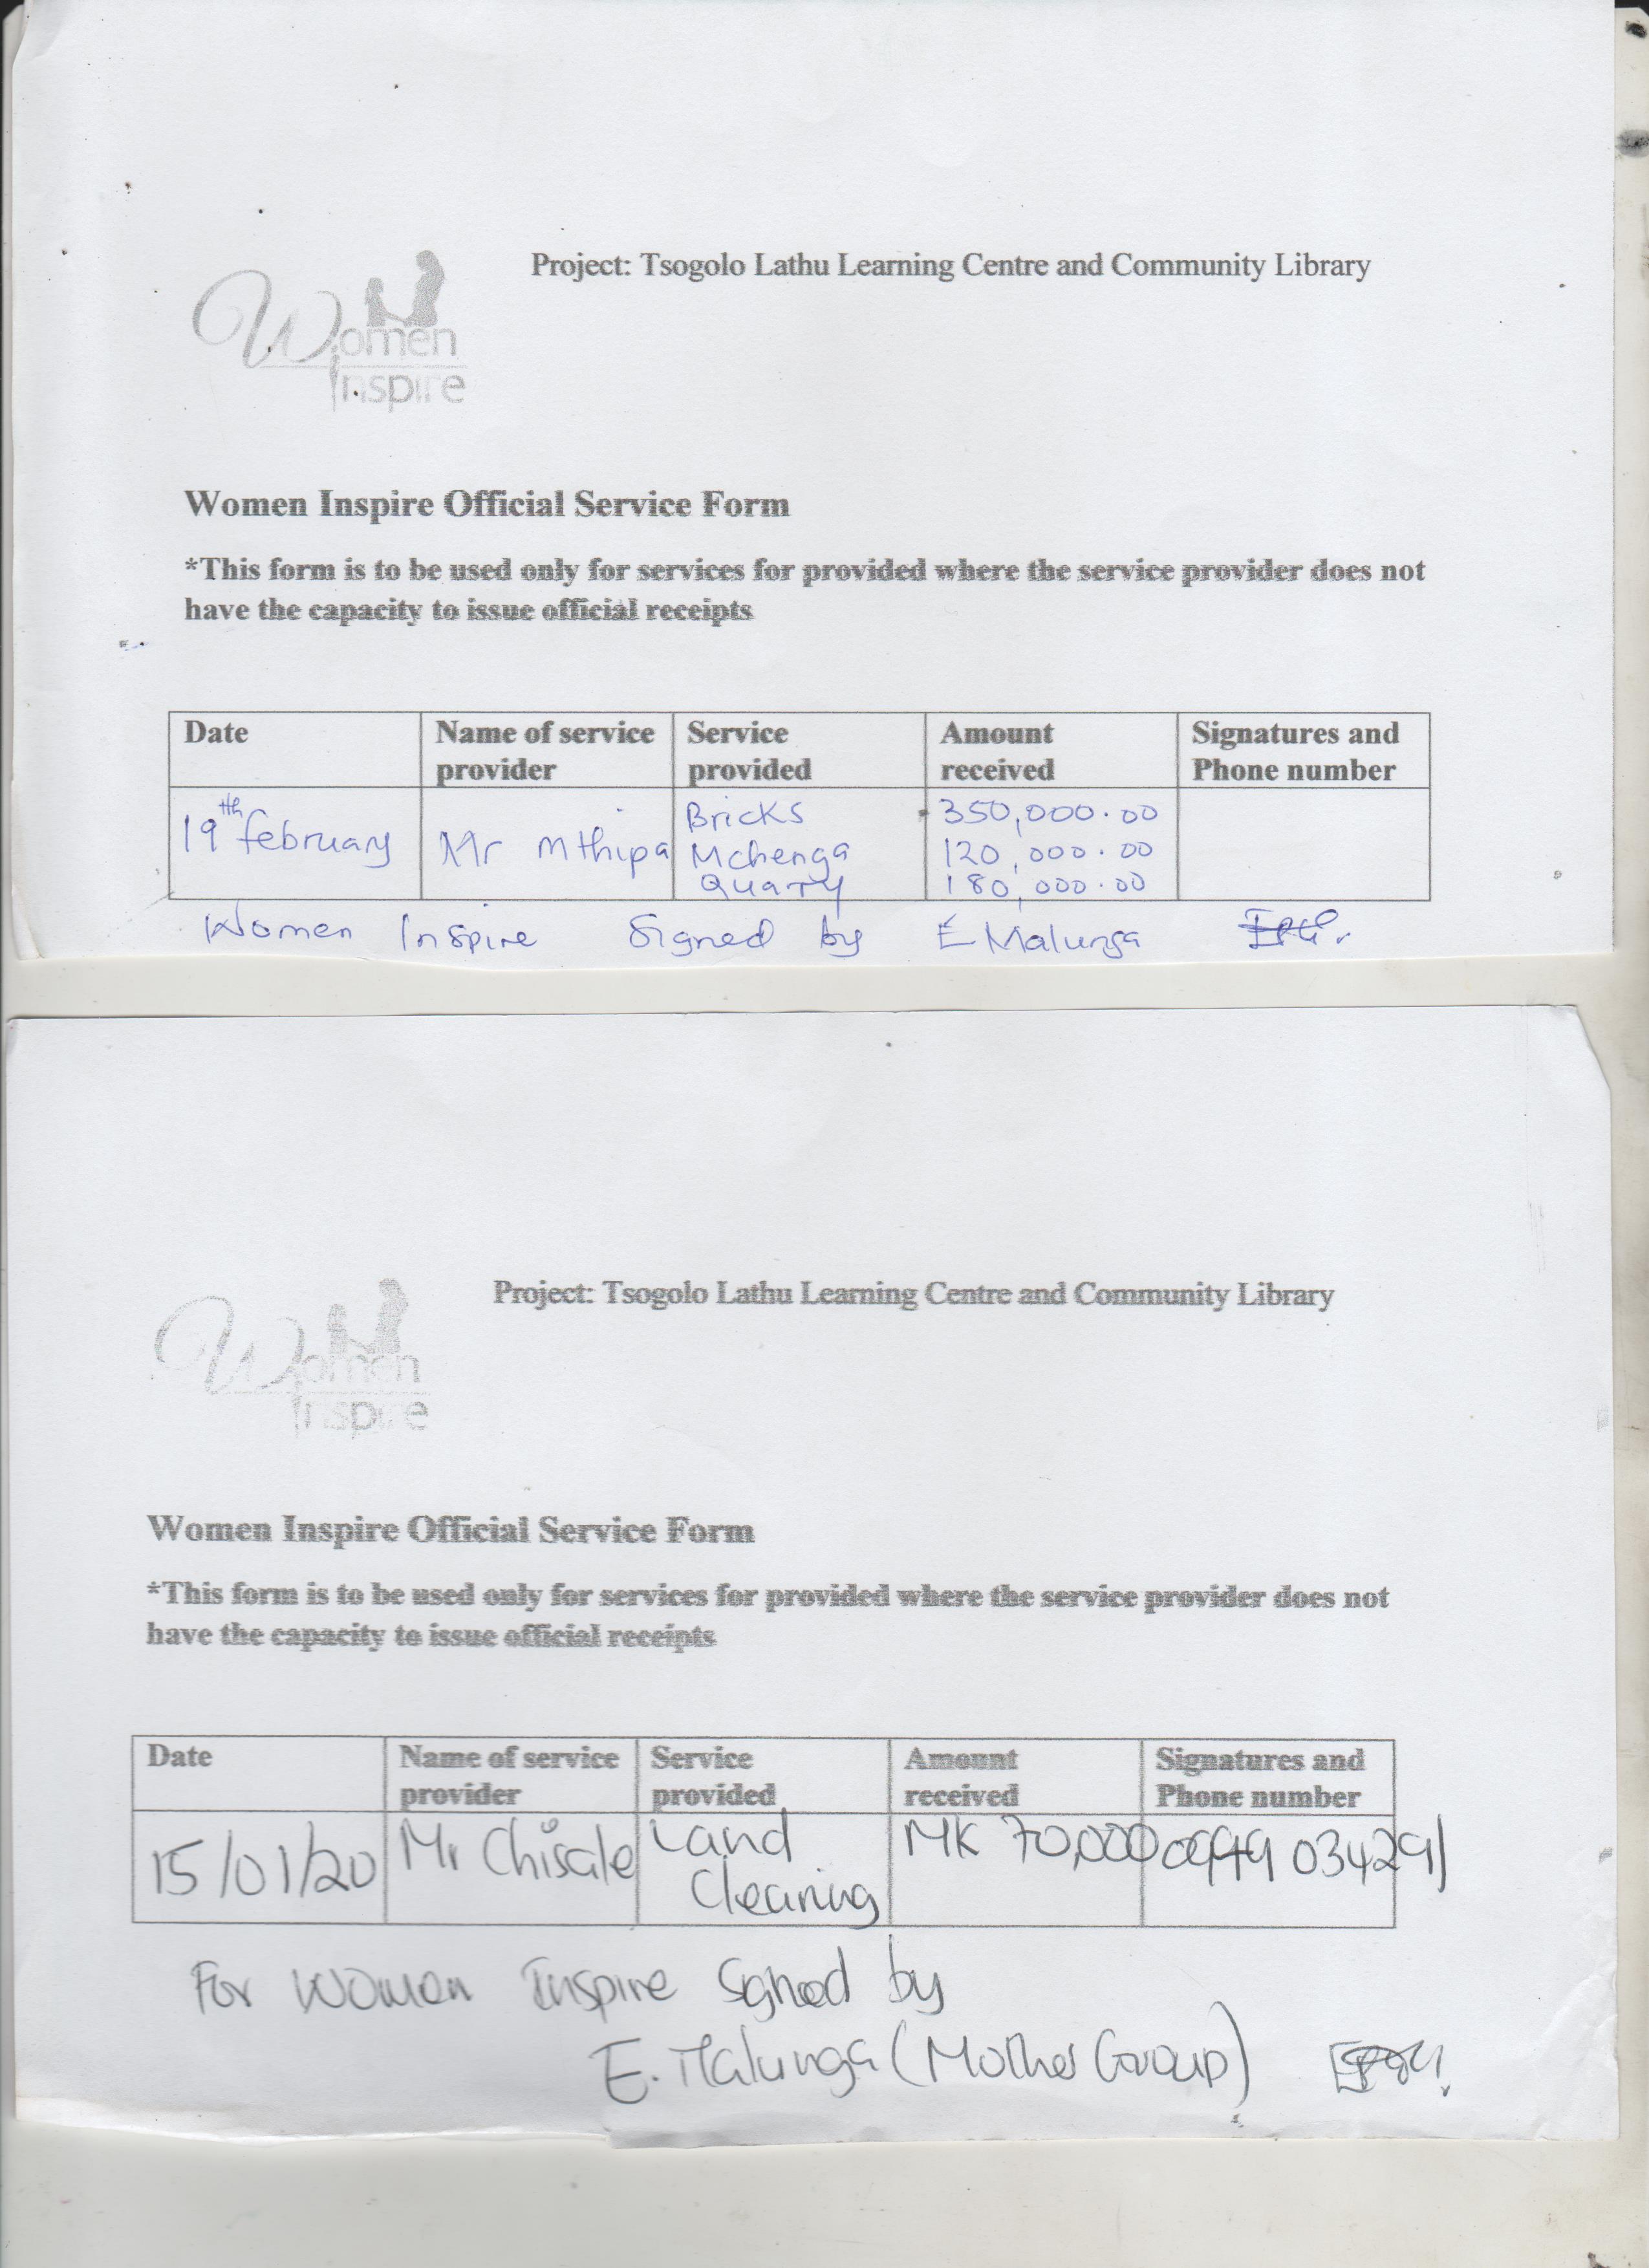 Project: Tsogolo Lathu Learning Centre and Community Library
Women
Inspire
Women Inspire Official Service Form
*This form is to be used only for services for provided where the service provider does not
have the capacity to issue official receipts
Date Name of service provider Service provided Amount received Signatures and Phone number
19th february Mr Mthipa Bricks 350,000.00
Mchenga 120,000.00
Quarry 180,000.00
Women Inspire Signed by E Malunga
Project: Tsogolo Lathu Learning Centre and Community Library
Women
Inspire
Women Inspire Official Service Form
*This form is to be used only for services for provided where the service provider does not
have the capacity to issue official receipts
Date Name of service provider Service provided Amount received Signatures and Phone number
15/01/20 Mr Chisale Land MK 70,000
Clearing
For Women Inspire Signed by
E. Malunga (Mother Group)